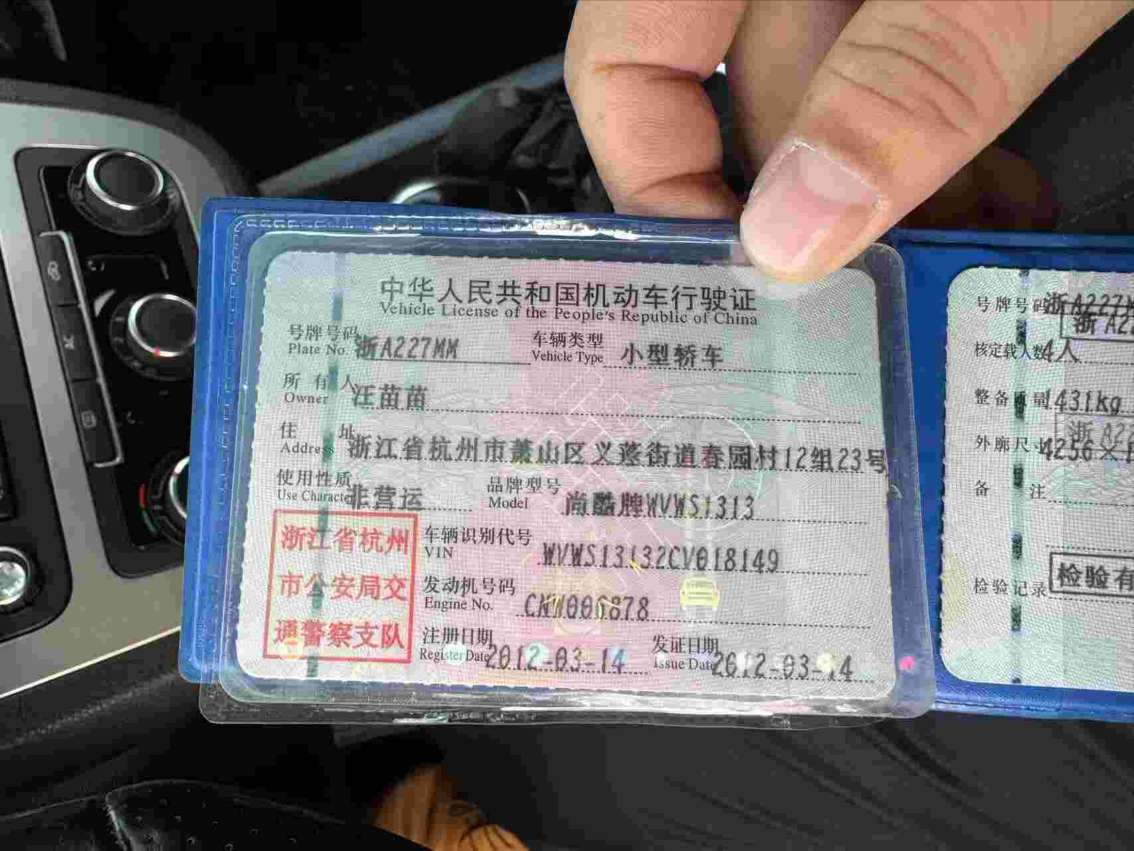 中华人民共和国机动车行驶证
Vehicle License of the People's Republic of China
号牌号码 浙A227MM 车辆类型 小型轿车
Plate No. Vehicle Type
所有人 汪苗苗
Owner
住址 浙江省杭州市萧山区义蓬街道春园村12组23号
Address
使用性质 非营运 品牌型号 尚酷牌WVWS1313
Use Character Model
浙江省杭州
市公安局交
通警察支队
车辆识别代号 WVWS13132CV018149
VIN
发动机号码
Engine No.
注册日期 2012-03-14 发证日期 2012-03-14
Register Date Issue Date
号牌号码 浙A227M
浙A22
核定载人数 4人
整备质量 1431kg
浙A22
外廓尺寸 4256×1
备注
检验记录 检验有